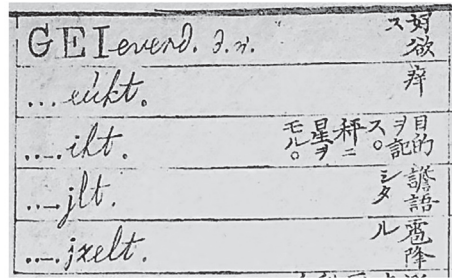 GEIeverd. ∂. n. 好欲ス
... eukt. 痒
.... ikt. 目的ヲ記ス。秤ニ星ヲモル。
.... jlt. 譫語シタル
.... jzelt. 雹降